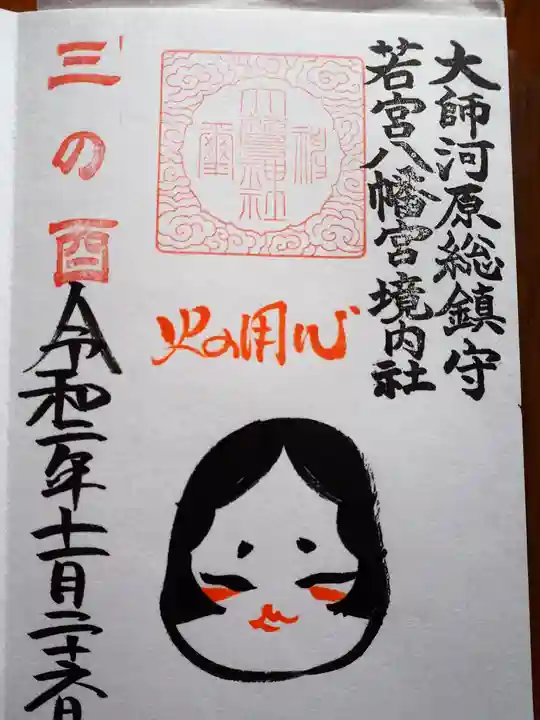 大師河原総鎮守
若宮八幡宮境内社
大鷲神社
火の用心
三の酉
令和二年十一月二十六日